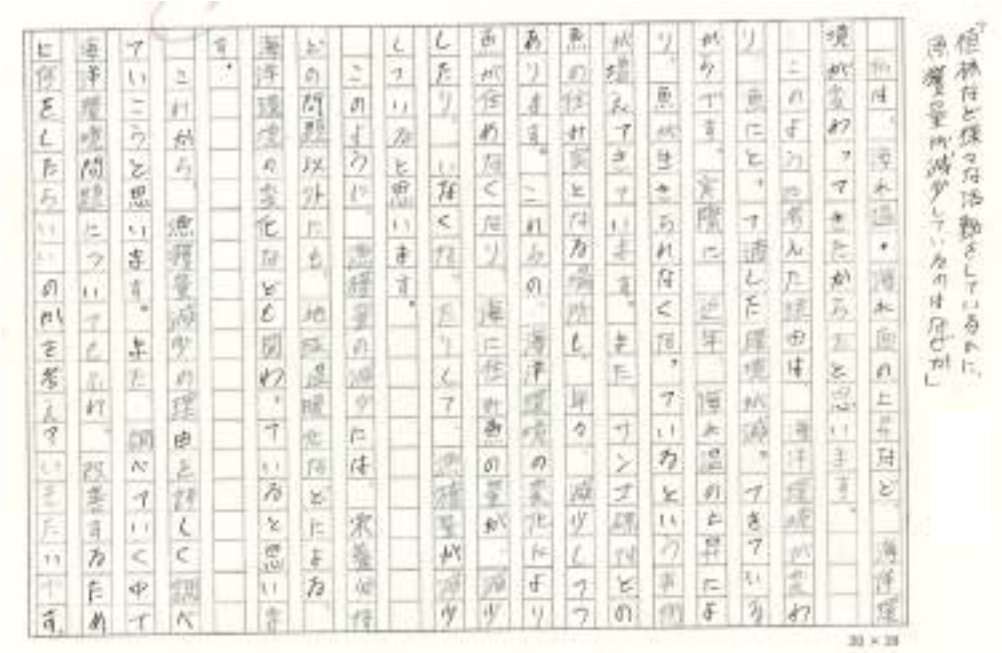 「植林など様々な活動をしているのに、
漁獲量が減少しているのはなぜか」
私は、海水温・海水面の上昇など、海洋環
境が変わってきたからだと思います。
このように考えた理由は、海洋環境が変わ
り、魚にとって適した環境が減ってきている
からです。実際に、近年、海水温の上昇によ
り、魚が生きられなくなっているという事例
が増えてきています。また、サンゴ礁などの
魚の住み家となる場所も年々、減少しつつ
あります。これらの、海洋環境の変化により
魚が住めなくなり、海に住む魚の量が、減少
したり、いなくなったりして、漁獲量が減少
しているいると思います。
このように、漁獲量の減少には、栄養塩な
どの問題以外にも、地球温暖化などによる
海洋環境の変化なども関わっていると思いま
す。
これから、漁獲量減少の理由を詳しく調べ
ていこうと思います。また、調べていく中で
海洋環境問題についてもふれ、改善するため
に何をしたらいいのかを考えていきたいです。
20 × 20